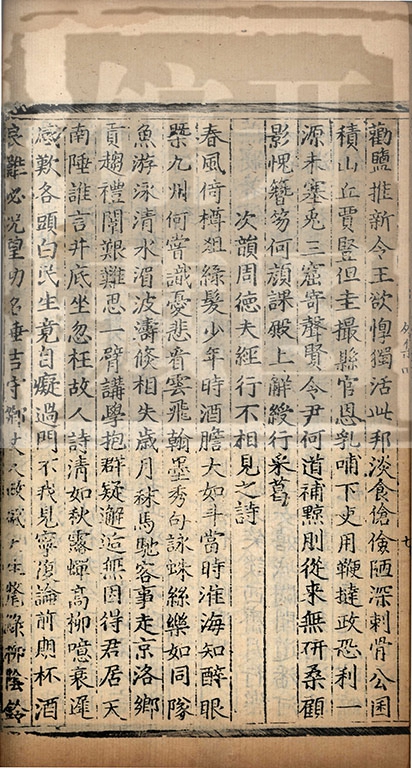 勸鹽推新令王欲惸獨活此邦淡食傖儉陋深刺骨公囷
積山丘賈豎但圭撮縣官恩乳哺下吏用鞭撻政恐利一
源未塞兔三窟寄聲賢令尹何道補黥刖從來無研桑顧
影愧簪笏何頗課殿上解綬行采葛
次韻周德夫經行不相見之詩
春風倚樽俎綠髮少年時酒膽大如斗當時淮海知醉眼
槩九州何嘗識憂悲看雲飛翰墨秀句詠蛛絲樂如同隊
魚游泳清水湄波濤倏相失歲月秣馬馳客事走京洛鄉
貢趨禮闈艱難思一臂講學抱群疑邂逅無因得君居天
南陲誰言井底坐忽枉故人詩清如秋露蟬高柳噫衰遲
感歎各頭白民生竟自癡過門不我見寧復論前期杯酒
良難必況望功名垂吉守鄭丈人政成犬生氂綠柳陰鈴